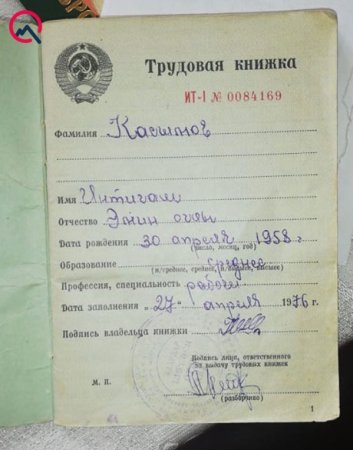 Трудовая книжка
ИТ-I № 0084169
Фамилия Касимов
Имя Интигам
Отчество оглы
Дата рождения 30 апреля 1958 г.
(число, месяц, год)
Образование среднее
Профессия, специальность рабочий
Дата заполнения „27“ апреля 1976 г.
Подпись владельца книжки
Подпись лица, ответственного
за выдачу трудовых книжек
М. П.
(разборчиво)
1